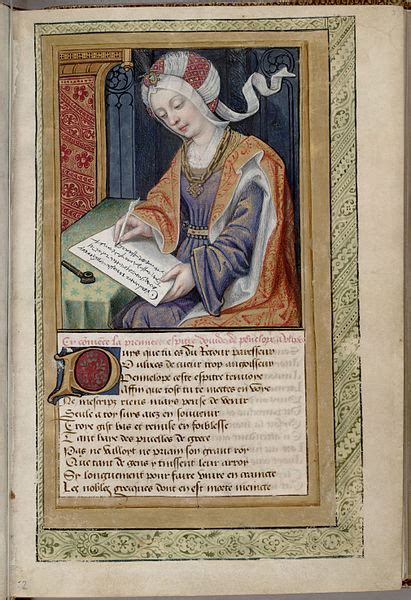 Cy cõmẽce la premiere espitre douide de penelope a ulixes
Puis que tu es du Retour paresseux
O ulixes de cueur trop angoisseux
Pennelope ceste espitre tenuoye
Affin que tost tu te mectes en voye
Ne mescripz riens mais pense de venir
Seule a toy suis aiez en souuenir
Troye gist bas et remise en foiblesse
Tant haye des pucelles de grece
Pas ne valloyt ne priam son grant roy
Que tant de gens y tinssent leur arroy
Sy longuement pour faire viure en craincte
Les nobles grecques dont en est morte maincte